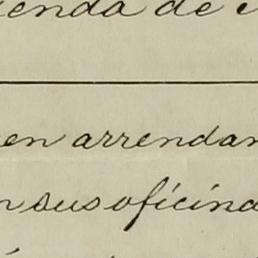 ienda de
en arrendar
n sus oficina